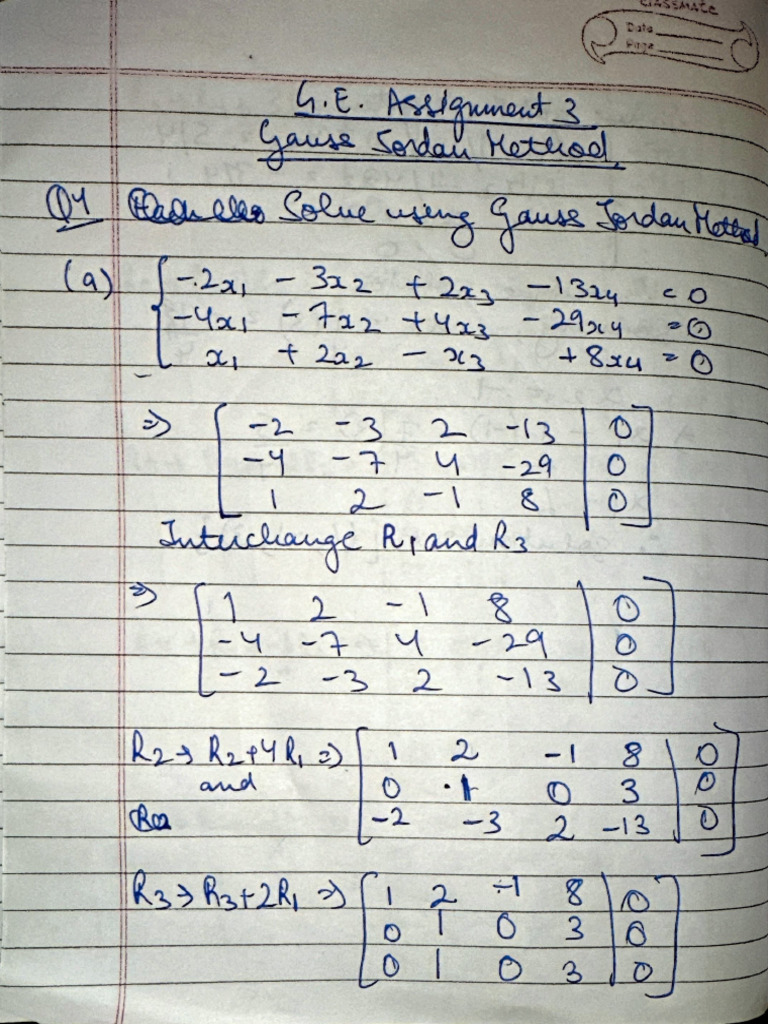 CLASSMATE
Date
Page
G.E. Assignment 3
Gauss Jordan Method
Q1 Solve using Gauss Jordan Method
(a) -2x1 - 3x2 + 2x3 - 13x4 = 0
-4x1 - 7x2 + 4x3 - 29x4 = 0
x1 + 2x2 - x3 + 8x4 = 0
⇒ -2 -3 2 -13 | 0
-4 -7 4 -29 | 0
1 2 -1 8 | 0
Interchange R1 and R3
⇒ 1 2 -1 8 | 0
-4 -7 4 -29 | 0
-2 -3 2 -13 | 0
R2 → R2+4R1 ⇒ 1 2 -1 8 | 0
and 0 1 0 3 | 0
-2 -3 2 -13 | 0
R3 → R3+2R1 ⇒ 1 2 -1 8 | 0
0 1 0 3 | 0
0 1 0 3 | 0